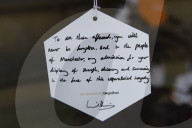 To all those affected, you will
never be forgotten, and to the people
of Manchester, my admiration for your
display of strength, decency and community
in the face of this unparalleled tragedy